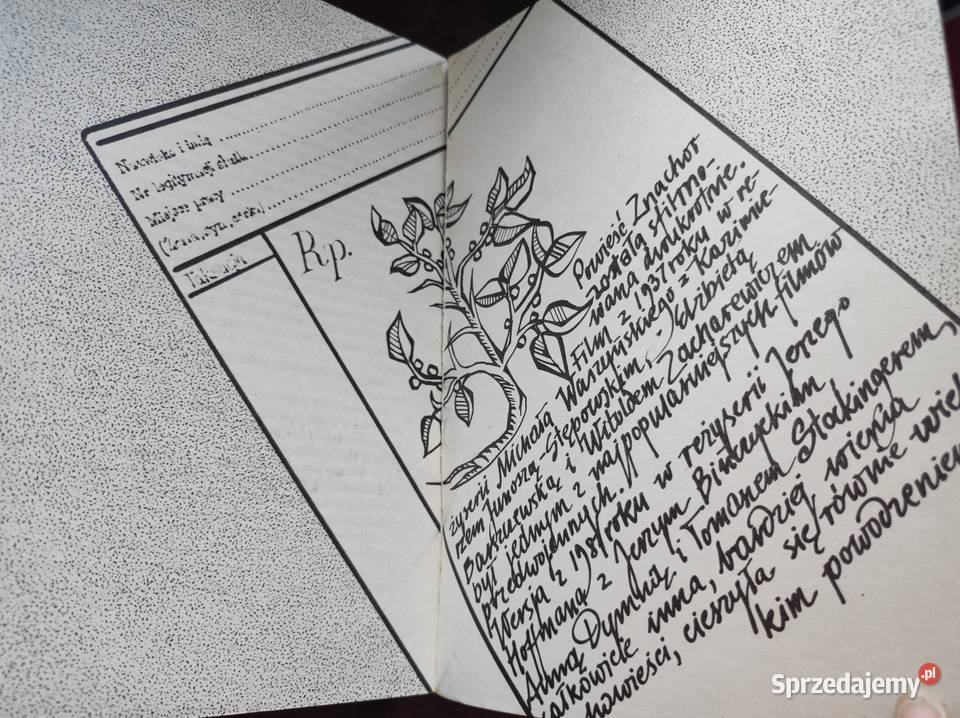 Nazwisko i imię
Nr legitymacji służb.
Miejsce pracy
(żona, syn, córka)
Rp.
Powieść Znachor
została sfilmo-
wana dwukrotnie.
Film z 1937 roku w re-
żyserii Michała Waszyńskiego z Kazimie-
rzem Junoszą-Stępowskim, Elżbietą
Barszczewską i Witoldem Zacharewiczem
był jednym z najpopularniejszych filmów
przedwojennych.
Wersja z 1981 roku w reżyserii Jerzego
Hoffmana z Jerzym Bińczyckim
Anną Dymną i Tomaszem Stockingerem,
całkowicie inna, bardziej wierna
powieści, cieszyła się równie wiel
kim powodzeniem
Sprzedajemy.pl